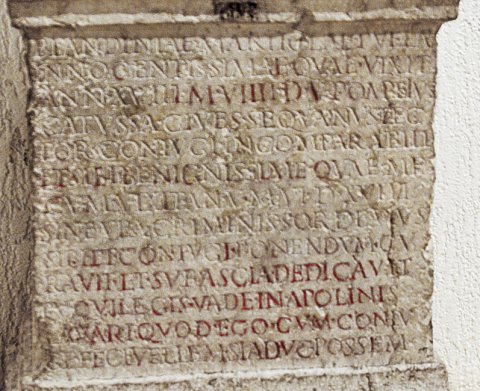 BLANDINIAE·MARTIOLAE·PVELLAE
INNOCENTISSIMAE·QVAE·VIXIT
ANN·XVIII·M·VIIII·D·V·POMPEIVS
CATVSSA·CIVES·SEQVANVS·TEC
TOR·CONIVGI·INCOMPARABILI
ET·SIBI·BENIGNISSIME·QVAE·ME
CVM·VIXIT·AN·V·M·VI·D·XVIII
SINE·VLA·CRIMINIS·SORDE·VIVVS
SIBI·ET·CONIVGI·PONENDVM·CV
RAVIT·ET·SVB·ASCIA·DEDICAVIT
TV·QVI·LEGIS·VADE·IN·APOLINIS
LAVARI·QVOD·EGO·CVM·CONIV
GE·FECI·VELLEM·SI·ADVC·POSSEM